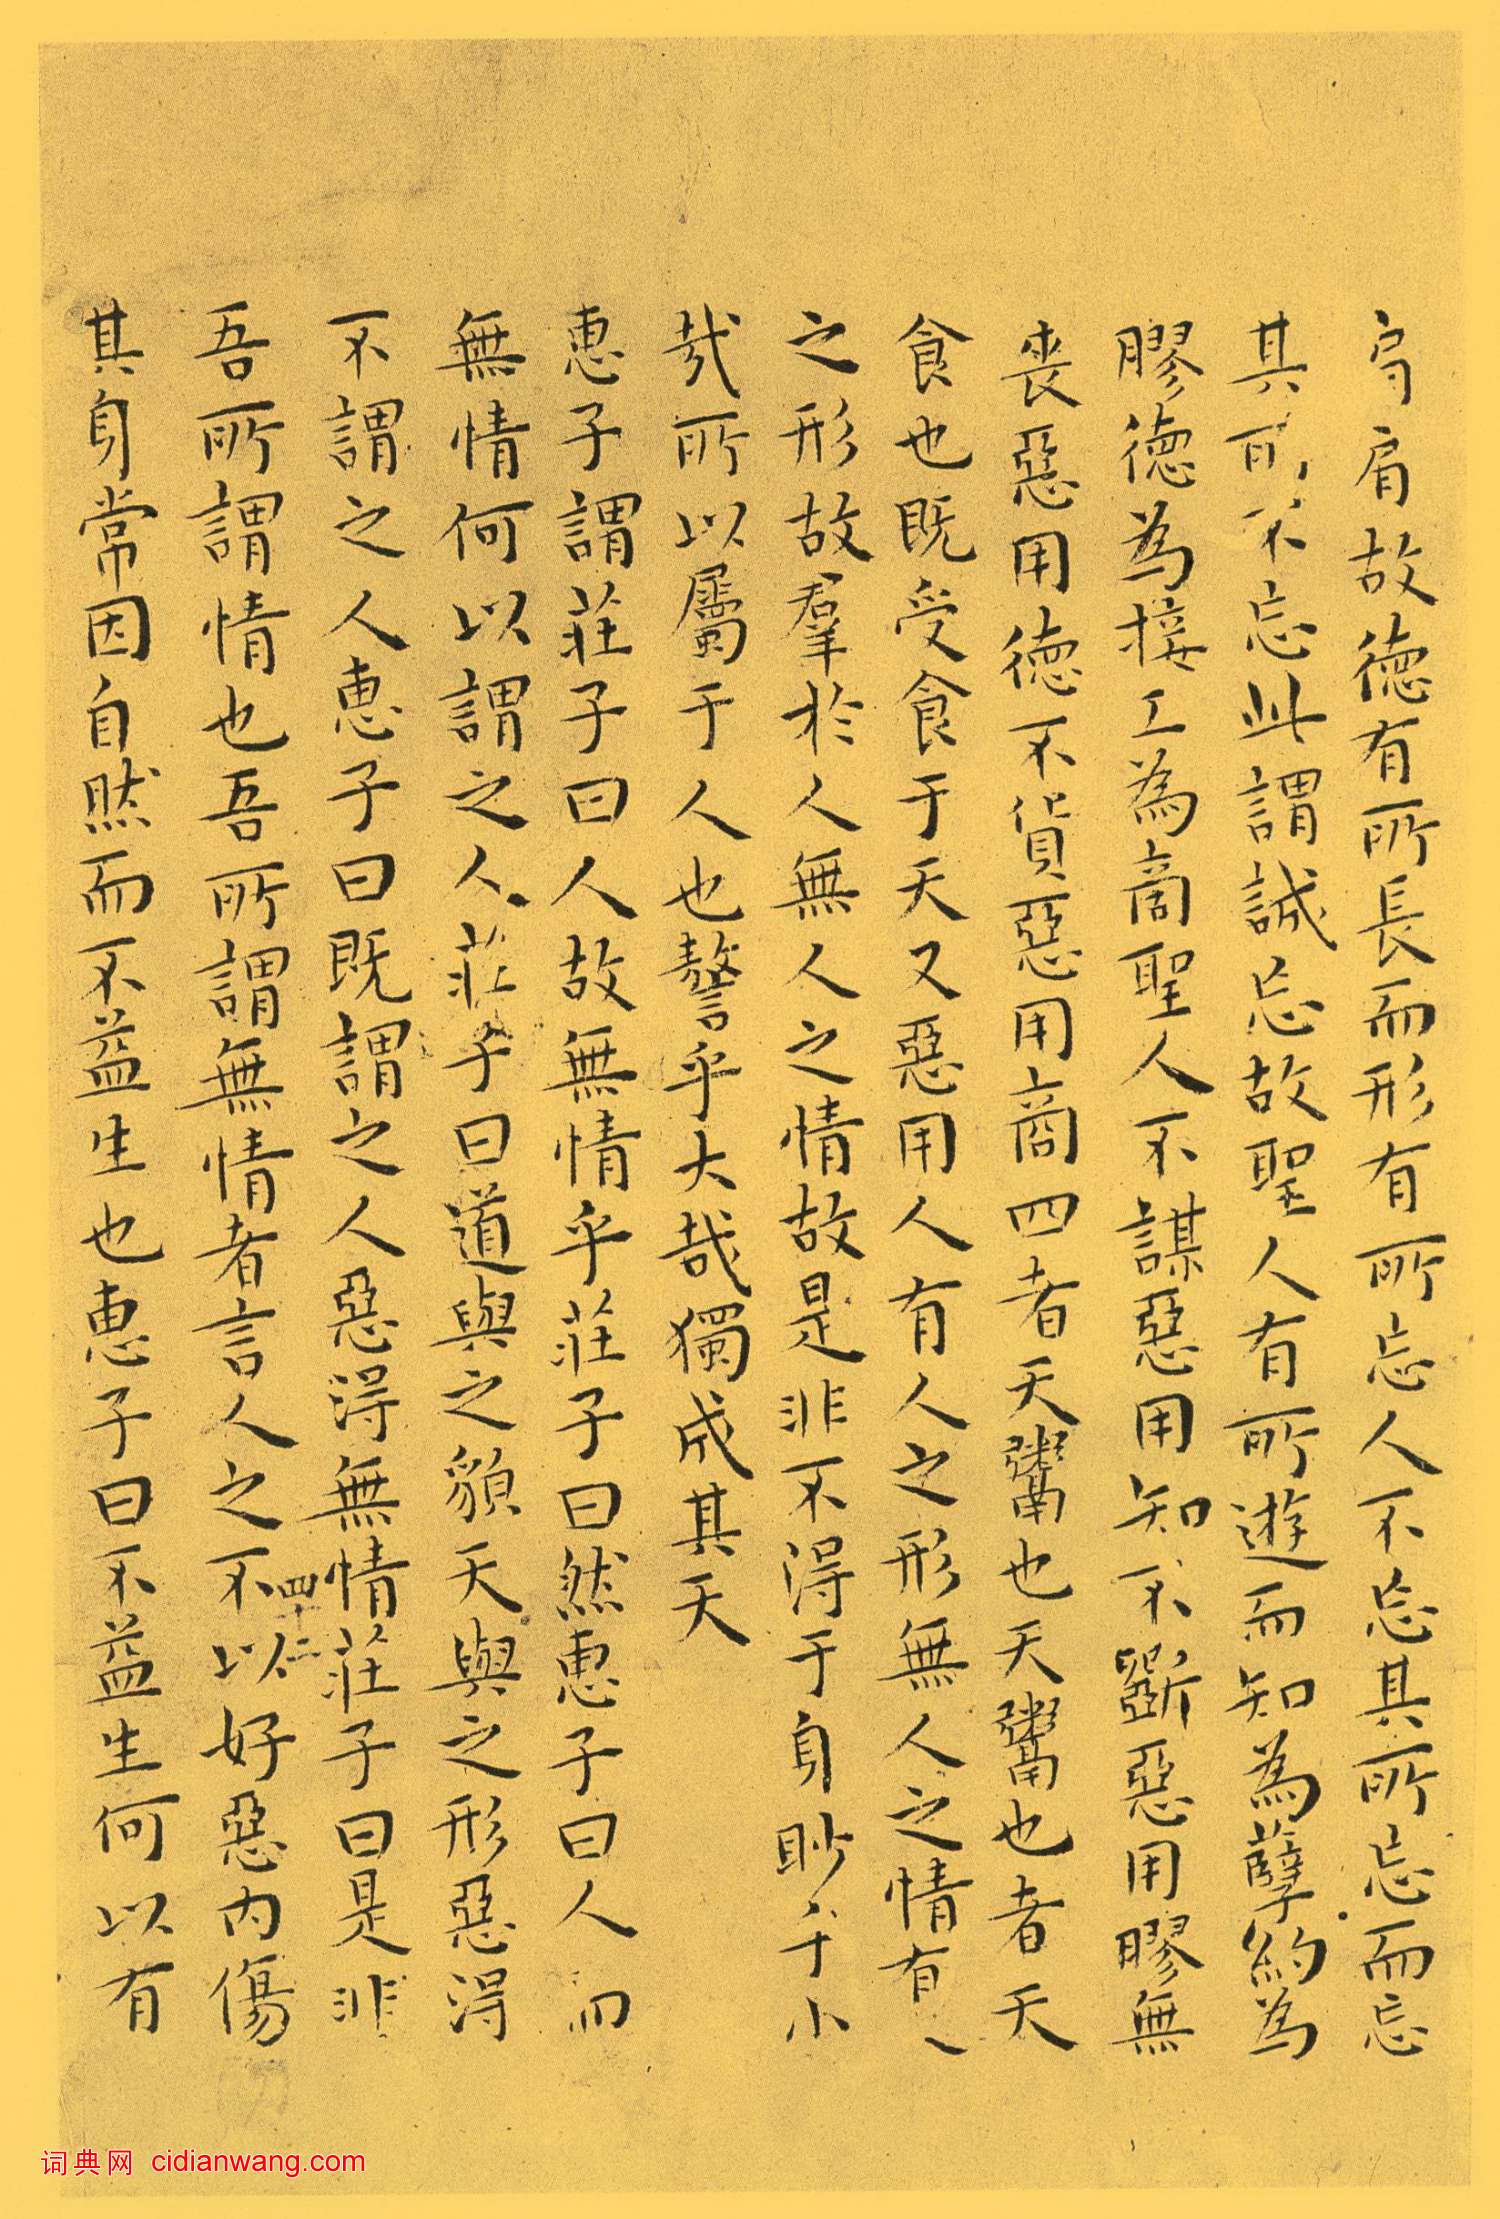 肩肩故德有所長而形有所忘人不忘其所忘而忘
其所不忘此謂誠忘故聖人有所遊而知為孽約為
膠德為接工為商聖人不謀惡用知不斲惡用膠無
喪惡用德不貨惡用商四者天鬻也天鬻也者天
食也既受食于天又惡用人有人之形無人之情有人
之形故羣於人無人之情故是非不得于身眇乎小
哉所以屬于人也謷乎大哉獨成其天
惠子謂莊子曰人故無情乎莊子曰然惠子曰人而
無情何以謂之人莊子曰道與之䫉天與之形惡得
不謂之人惠子曰既謂之人惡得無情莊子曰是非
四十二
吾所謂情也吾所謂無情者言人之不以好惡內傷
其身常因自然而不益生也惠子曰不益生何以有
词典网 cidianwang.com